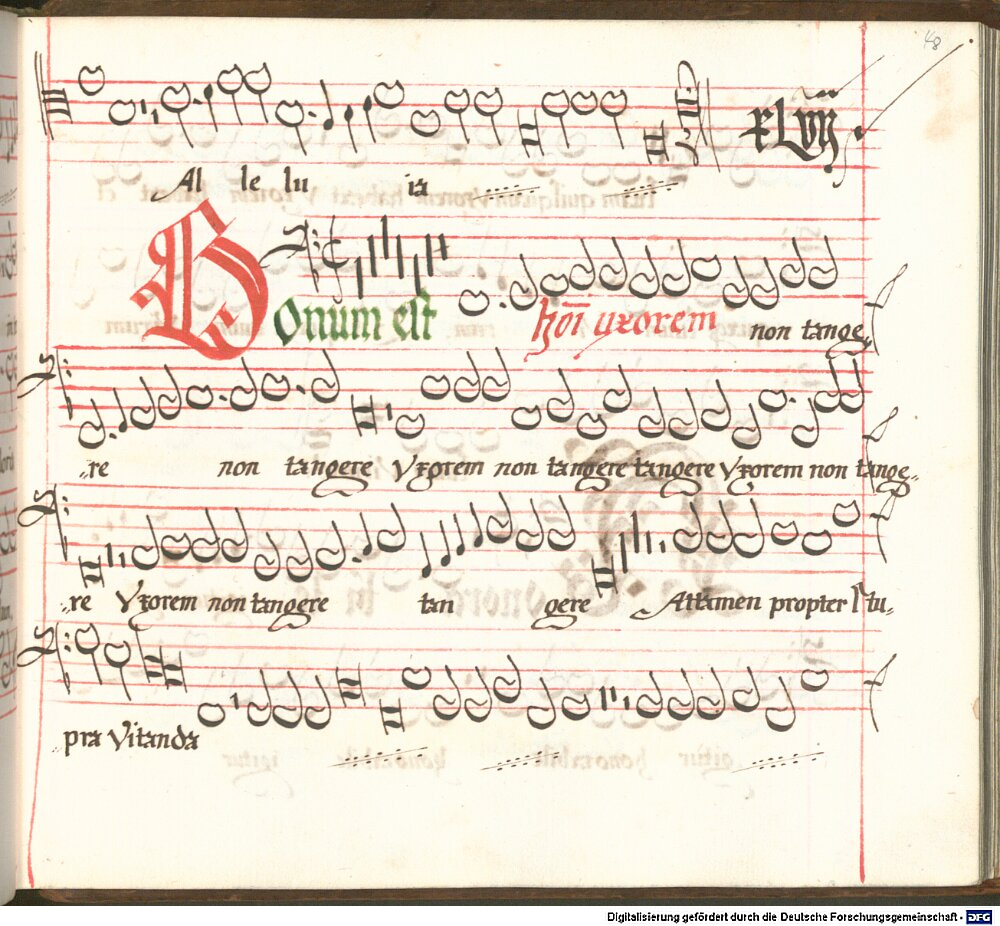 48
Al le lu ia
xLviij
Bonum est hōi uxorem non tange„
„re non tangere Vxorem non tangere tangere Vxorem non tange„
„re Vxorem non tangere tan gere Attamen propter stu„
pra Vitanda
Digitalisierung gefördert durch die Deutsche Forschungsgemeinschaft - DFG